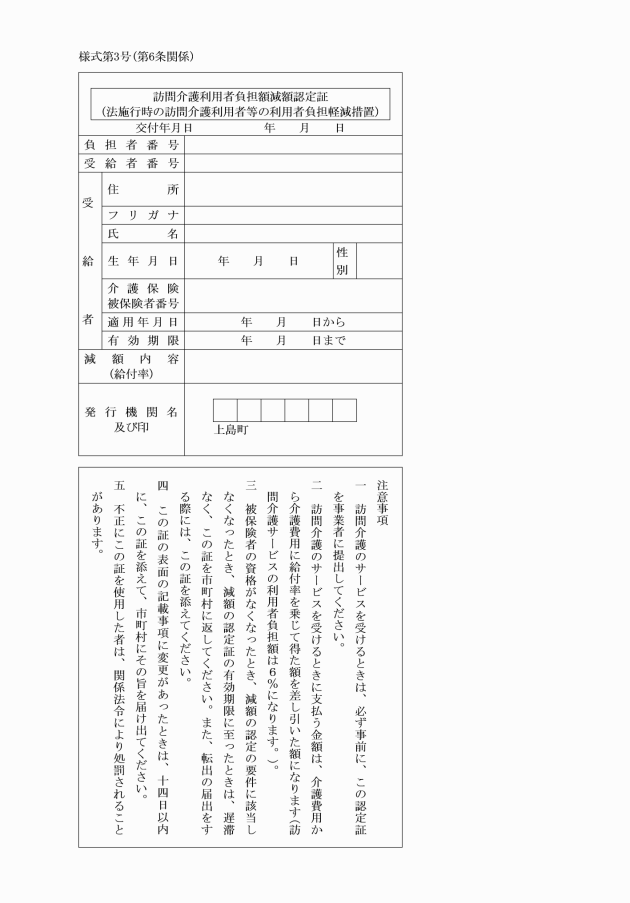 様式第3号(第6条関係)
訪問介護利用者負担額減額認定証
(法施行時の訪問介護利用者等の利用者負担軽減措置)
交付年月日 年 月 日
負担者番号
受給者番号
受給者
住所
フリガナ
氏名
生年月日 年 月 日 性別
介護保険
被保険者番号
適用年月日 年 月 日から
有効期限 年 月 日まで
減額内容
(給付率)
発行機関名
及び印
上島町
注意事項
一 訪問介護のサービスを受けるときは、必ず事前に、この認定証
を事業者に提出してください。
二 訪問介護のサービスを受けるときに支払う金額は、介護費用か
ら介護費用に給付率を乗じて得た額を差し引いた額になります(訪
問介護サービスの利用者負担額は6%になります。)。
三 被保険者の資格がなくなったとき、減額の認定の要件に該当し
なくなったとき、減額の認定証の有効期限に至ったときは、遅滞
なく、この証を市町村に返してください。また、転出の届出をす
る際には、この証を添えてください。
四 この証の表面の記載事項に変更があったときは、十四日以内
に、この証を添えて、市町村にその旨を届け出てください。
五 不正にこの証を使用した者は、関係法令により処罰されること
があります。